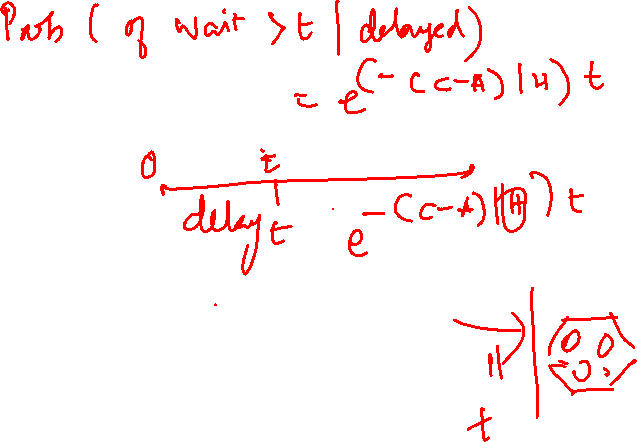 Prob ( of wait > t | delayed)
= e^(-(C-A)|H) t
0 t
delay t e^-(C-A)|(H) t
t